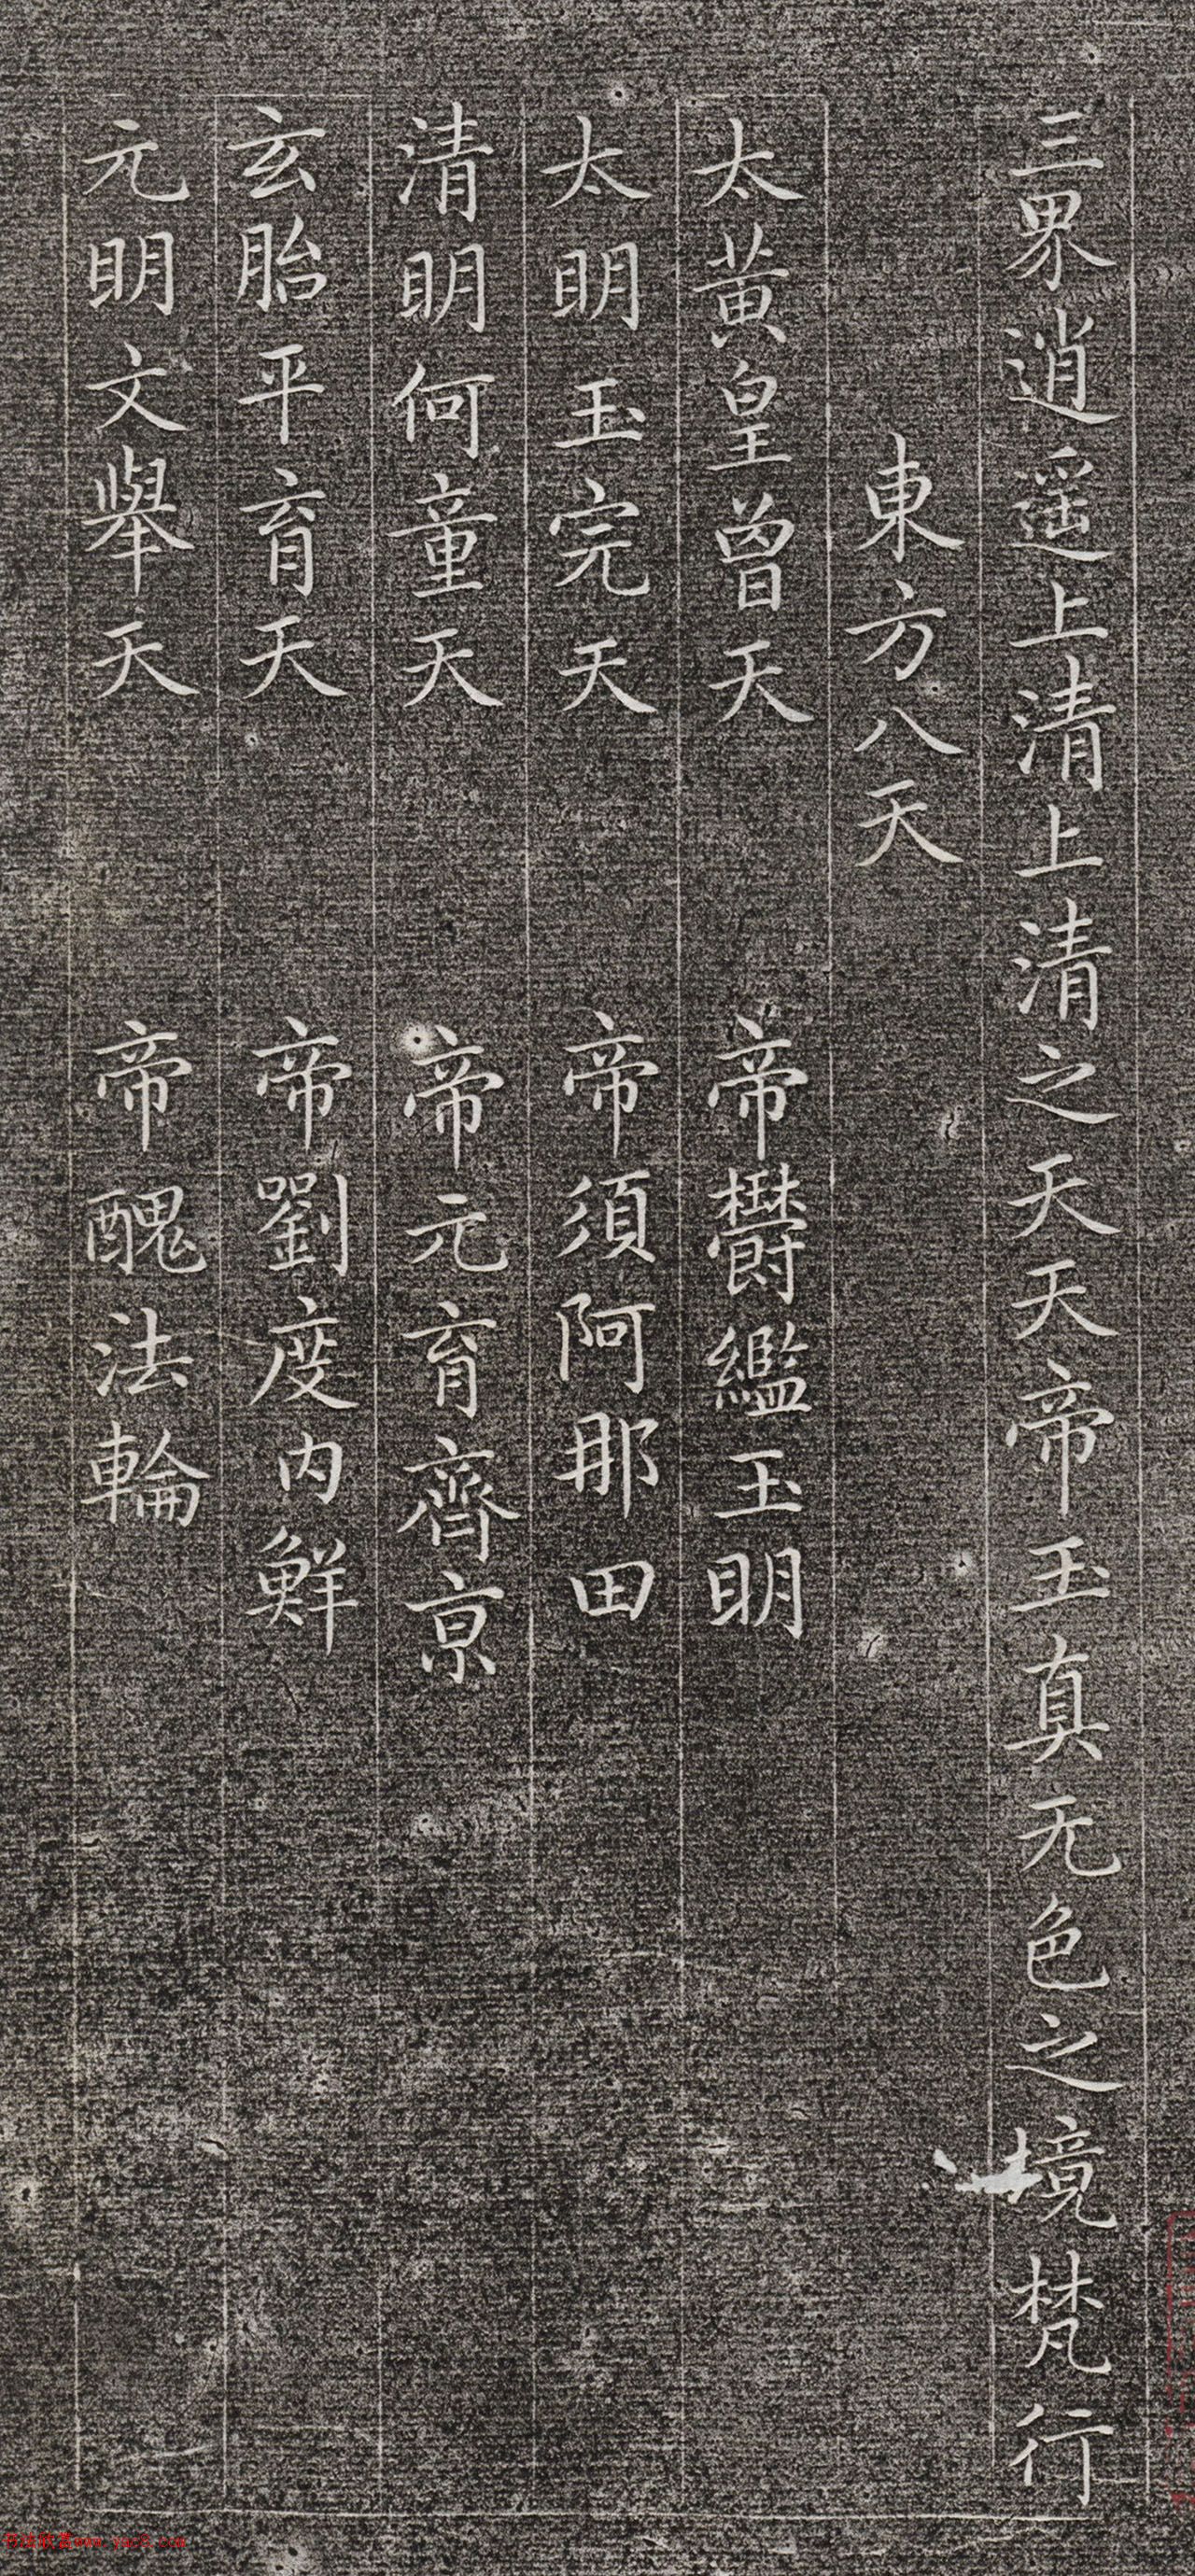 三界逍遥上清上清之天天帝玉真无色之境梵行
東方八天
太黄皇曾天 帝欝繿玉明
太明玉完天 帝須阿那田
清明何童天 帝元育齊京
玄胎平育天 帝劉度内鮮
元明文舉天 帝醜法輪
书法欣赏www.yac8.com